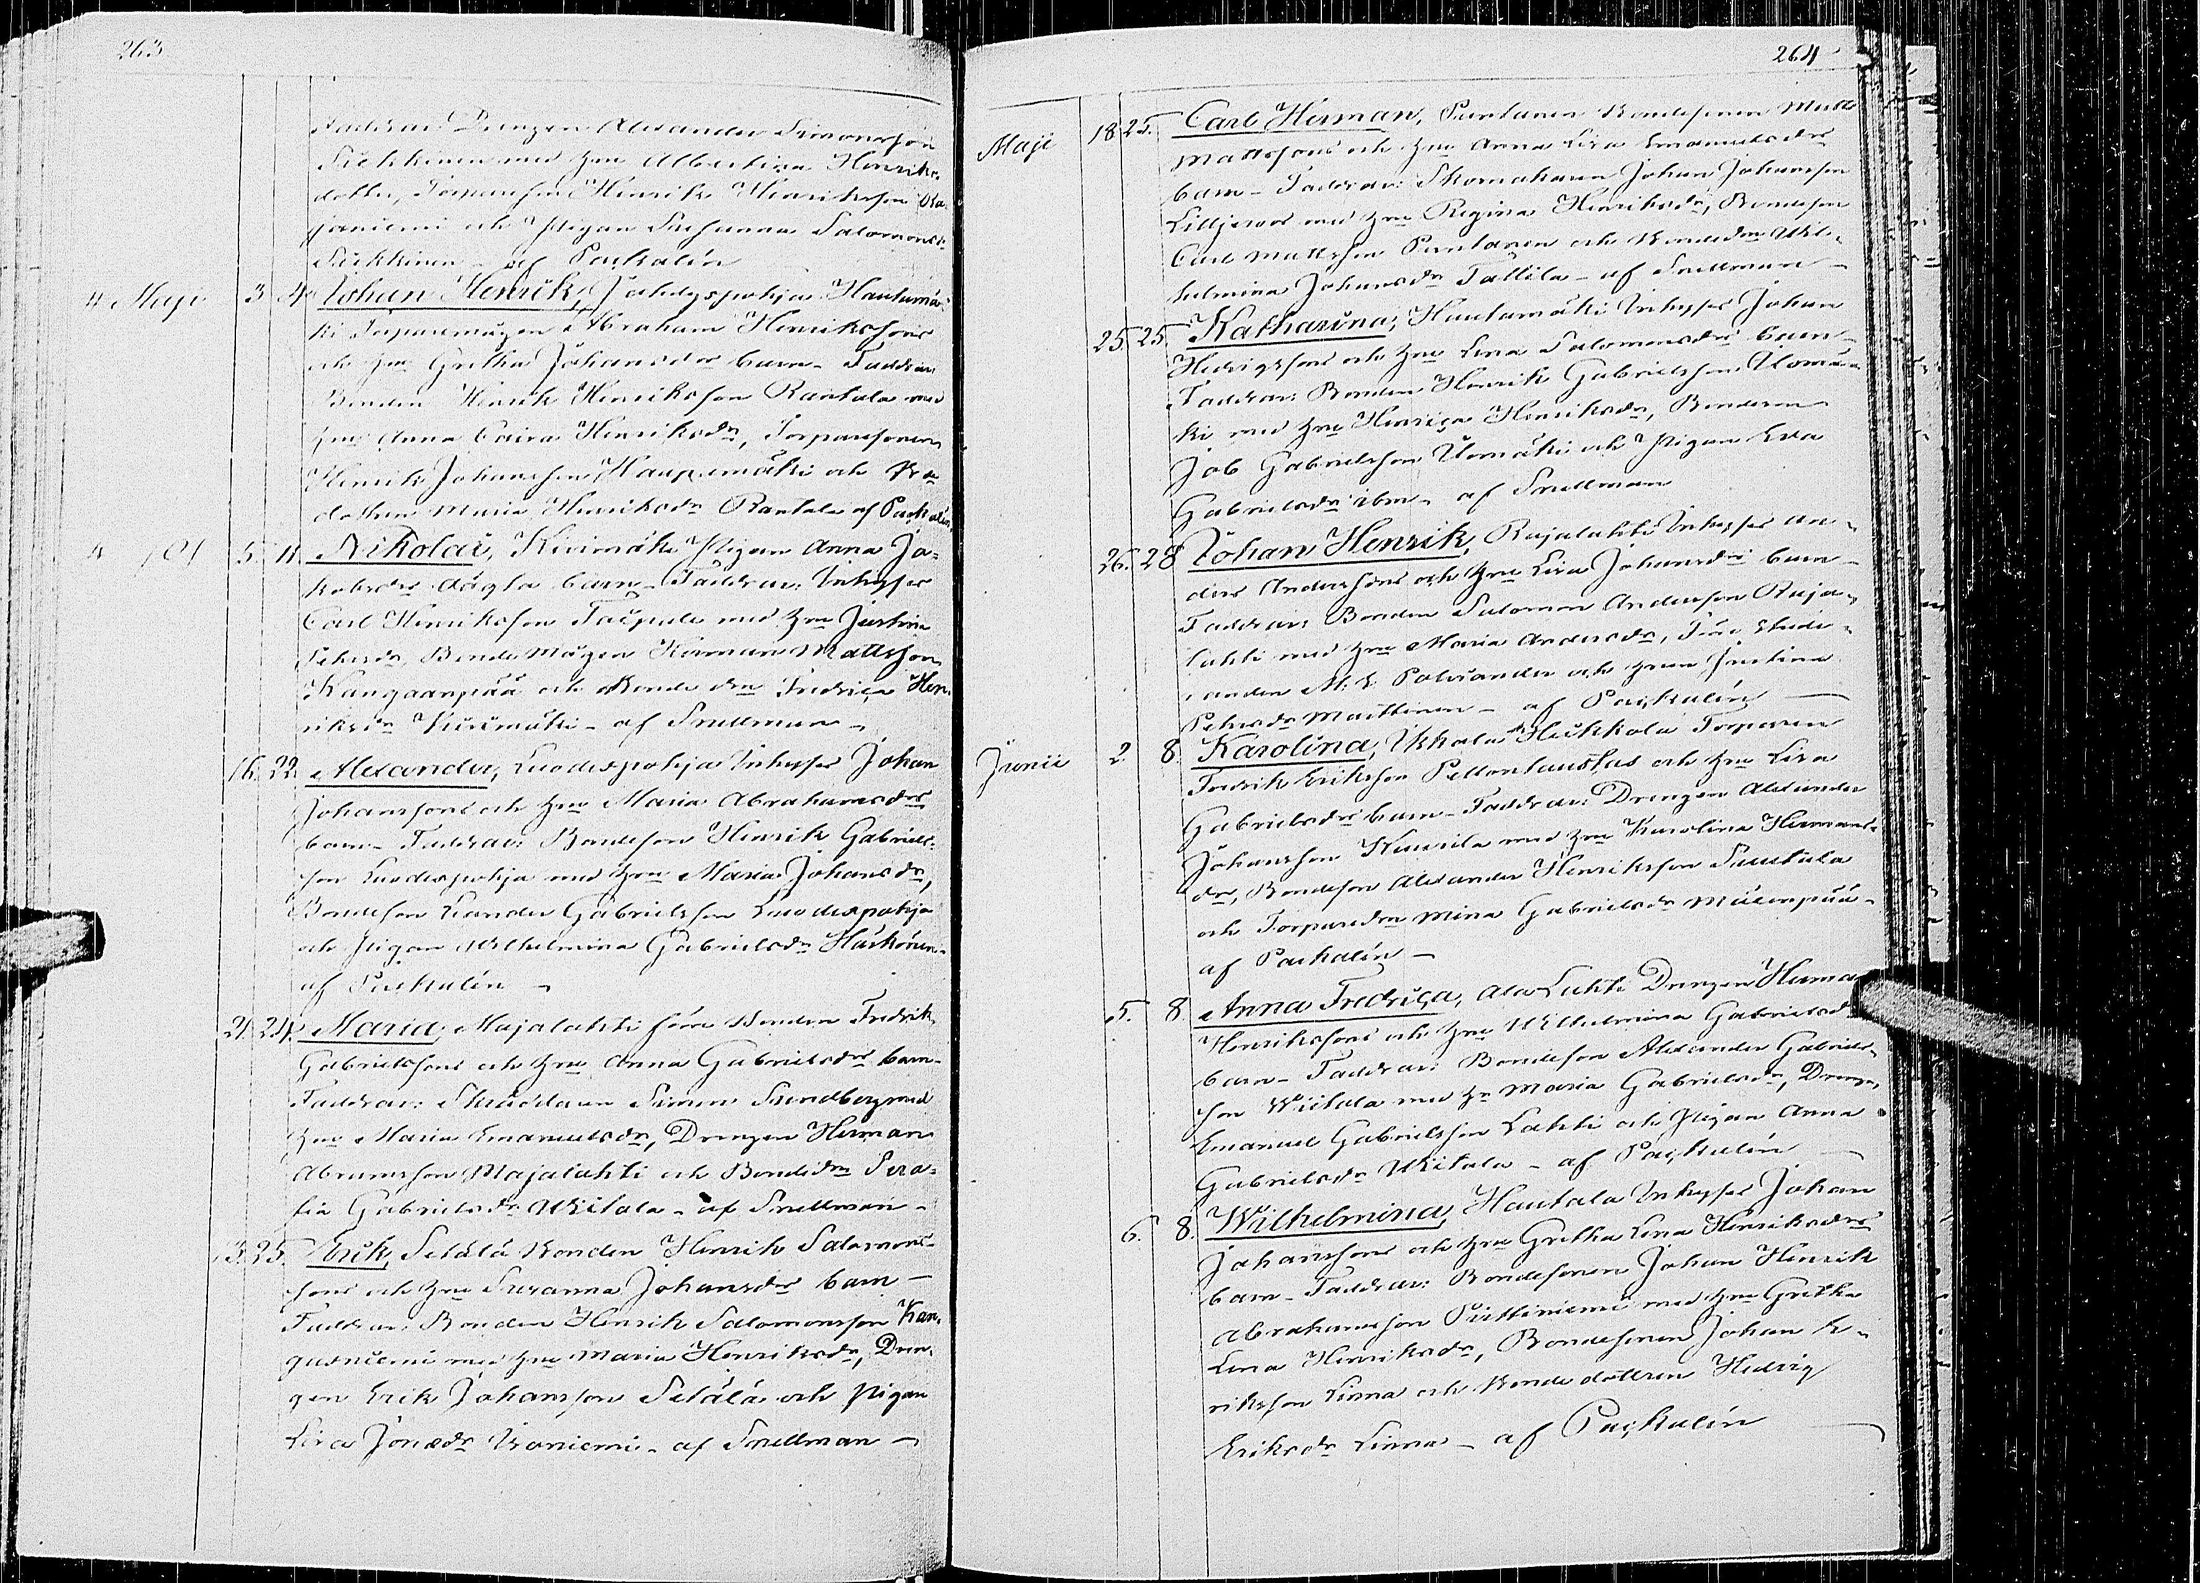 263
Faddrar: Drengen Alexander Simonsson
Sikkinen med hu Albertina Henriks-
dotter, Torparesonen Henrik Henriksson Oja-
janiemi och Pigan Susanna Salomonsdr
Sikkinen af Paskalin
4 Maji 3 4. Johan Henrik, Hautamä-
ki Torparemågen Abraham Henrikssons
och hu Gretha Johansdrs barn - Faddrar
Bonden Henrik Henriksson Rantala med
hu Anna Caisa Henriksdr, Torparesonen
Henrik Johansson Haapamäki och Bde
dottren Maria Henriksdr Rantala af Paskalin
5. 11. Nikolai, Kivimäki Pigan Anna Ja-
kobsdrs oägta barn - Faddrar: Inhyses
Carl Henriksson Taipale med hu Justina
Petersdr, Bonde Mågen Herman Mattsson
Kangaanpää och Bonde dn Fredrica Hen-
riksdr Kivimäki - af Snellman -
16. 22. Alexander, Luodespohja Inhyses Johan
Johanssons och hu Maria Abrahamsdrs
barn - Faddrar: Bondeson Henrik Gabriels-
son Luodespohja med hu Maria Johansdr,
Bondeson Leander Gabrielsson Luodespohja
och Pigan Wilhelmina Gabrielsdr Härkönen -
af Paskalin -
21. 24. Maria, Majalahti förre Bonden Fredrik
Gabrielssons och hu Anna Gabrielsdrs barn -
Faddrar: Skräddaren Simon Sundberg med
hu Maria Emanuelsdr, Drengen Herman
Abramsson Majalahti och Bondedn Sera-
fia Gabrielsdr Wiitala - af Snellman -
23. 25. Erik, Setälä Bonden Henrik Salomons-
sons och hu Susanna Johansdrs barn -
Faddrar: Bonden Henrik Salomonsson Kan-
gasniemi med hu Maria Henriksdr, Dren-
gen Erik Johansson Setälä och Pigan
Lisa Jonædr Isoniemi - af Snellman -
264
Maji 18 25. Carl Herman, Puntanen Bondesonen Matts
Mattssons och hu Anna Lisa Emanuelsdrs
barn - Faddrar: Skomakaren Johan Johansson
Liljeroos med hu Regina Henriksdr, Bondeson
Carl Mattsson Puntanen och Bondedn Wil-
helmina Johansdr Tallila - af Snellman -
25. 25. Katharina, Hautamäki Inhyses Johan
Hedrigssons och hu Lena Salomonsdrs barn -
Faddrar: Bonden Henrik Gabrielsson Uomä-
ki med hu Henrica Henriksdr, Bondeson
Job Gabrielsson Uomäki och Pigan Eva
Gabrielsdr ibm - af Snellman
26. 28 Johan Henrik, Rajalahti Inhyses An-
ders Anderssons och hu Lisa Johansdrs barn -
Faddrar: Bonden Salomon Andersson Raja-
lahti med hu Maria Andersdr, Stude-
randen M. E. Polviander och hu Justina
Petersdr Maittinen - af Paskalin
Junii 2. 8. Karolina, Heikkola Torparen
Fredrik Eriksson Pellontaustas och hu Lisa
Gabrielsdrs barn - Faddrar: Drengen Alexander
Johansson Heinilä med hu Karolina Hermans-
dr, Bondeson Alexander Henriksson Sautala
och Torparedn Mina Gabrielsdr Mäkenpää -
af Paskalin -
5. 8. Anna Fredrica, Ala Lahti Drengen Herman
Henrikssons och hu Wilhelmina Gabrielsdrs
barn - Faddrar: Bondeson Alexander Gabriels-
son Wiitala med hu Maria Gabrielsdr, Drengen
Emanuel Gabrielsson Lahti och Pigan Anna
Gabrielsdr Wiitala - af Paskalin
6. 8. Wilhelmina, Hautala Inhyses Johan
Johanssons och hu Gretha Lena Henriksdrs
barn - Faddrar: Bondesonen Johan Henrik
Abrahamsson Pirttiniemi med hu Gretha
Lena Henriksdr, Bondesonen Johan E-
riksson Linna och Bonde dottren Hedvig
Eriksdr Linna - af Paskalin